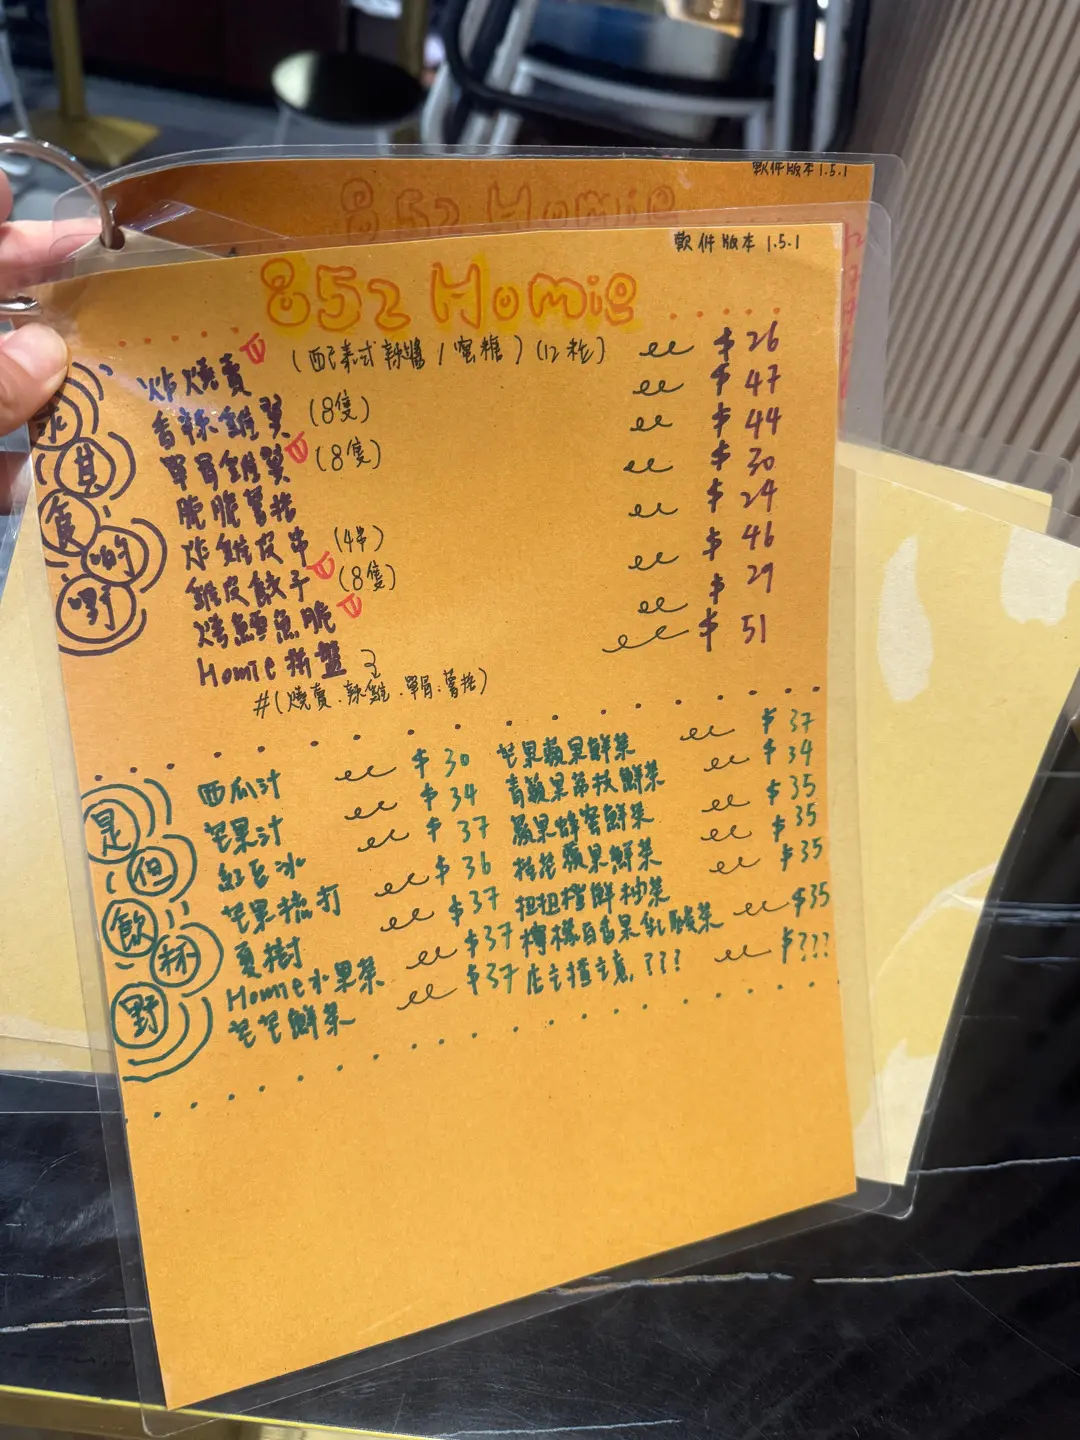 軟件版本 1.5.1
852 Homie
軟件版本 1.5.1
852 Homie
炸燒賣 (配泰式辣醬/蜜糖) (12粒) $26
香辣雞翼 (8隻) $47
單骨雞翼 (8隻) $44
脆脆薯格 $30
炸雞皮串 (4串) $24
雞皮餃子 (8隻) $46
烤鱈魚脆 $29
Homie拼盤 $51
#(燒賣.辣雞.單骨.薯格)
其
食
啲
嘢
西瓜汁 $30 芒果蘋果鮮茶 $37
芒果汁 $34 青蘋果荔枝鮮茶 $34
紅豆冰 $37 蘋果蜂蜜鮮茶 $35
芒果梳打 $36 桂花蘋果鮮茶 $35
夏樹 $37 柑柑橙鮮柚茶 $35
Homie水果茶 $37 檸檬百香果乳酸茶 $35
芒芒鮮茶 $37 店主揸主意 ??? $???
是
但
飲
杯
野